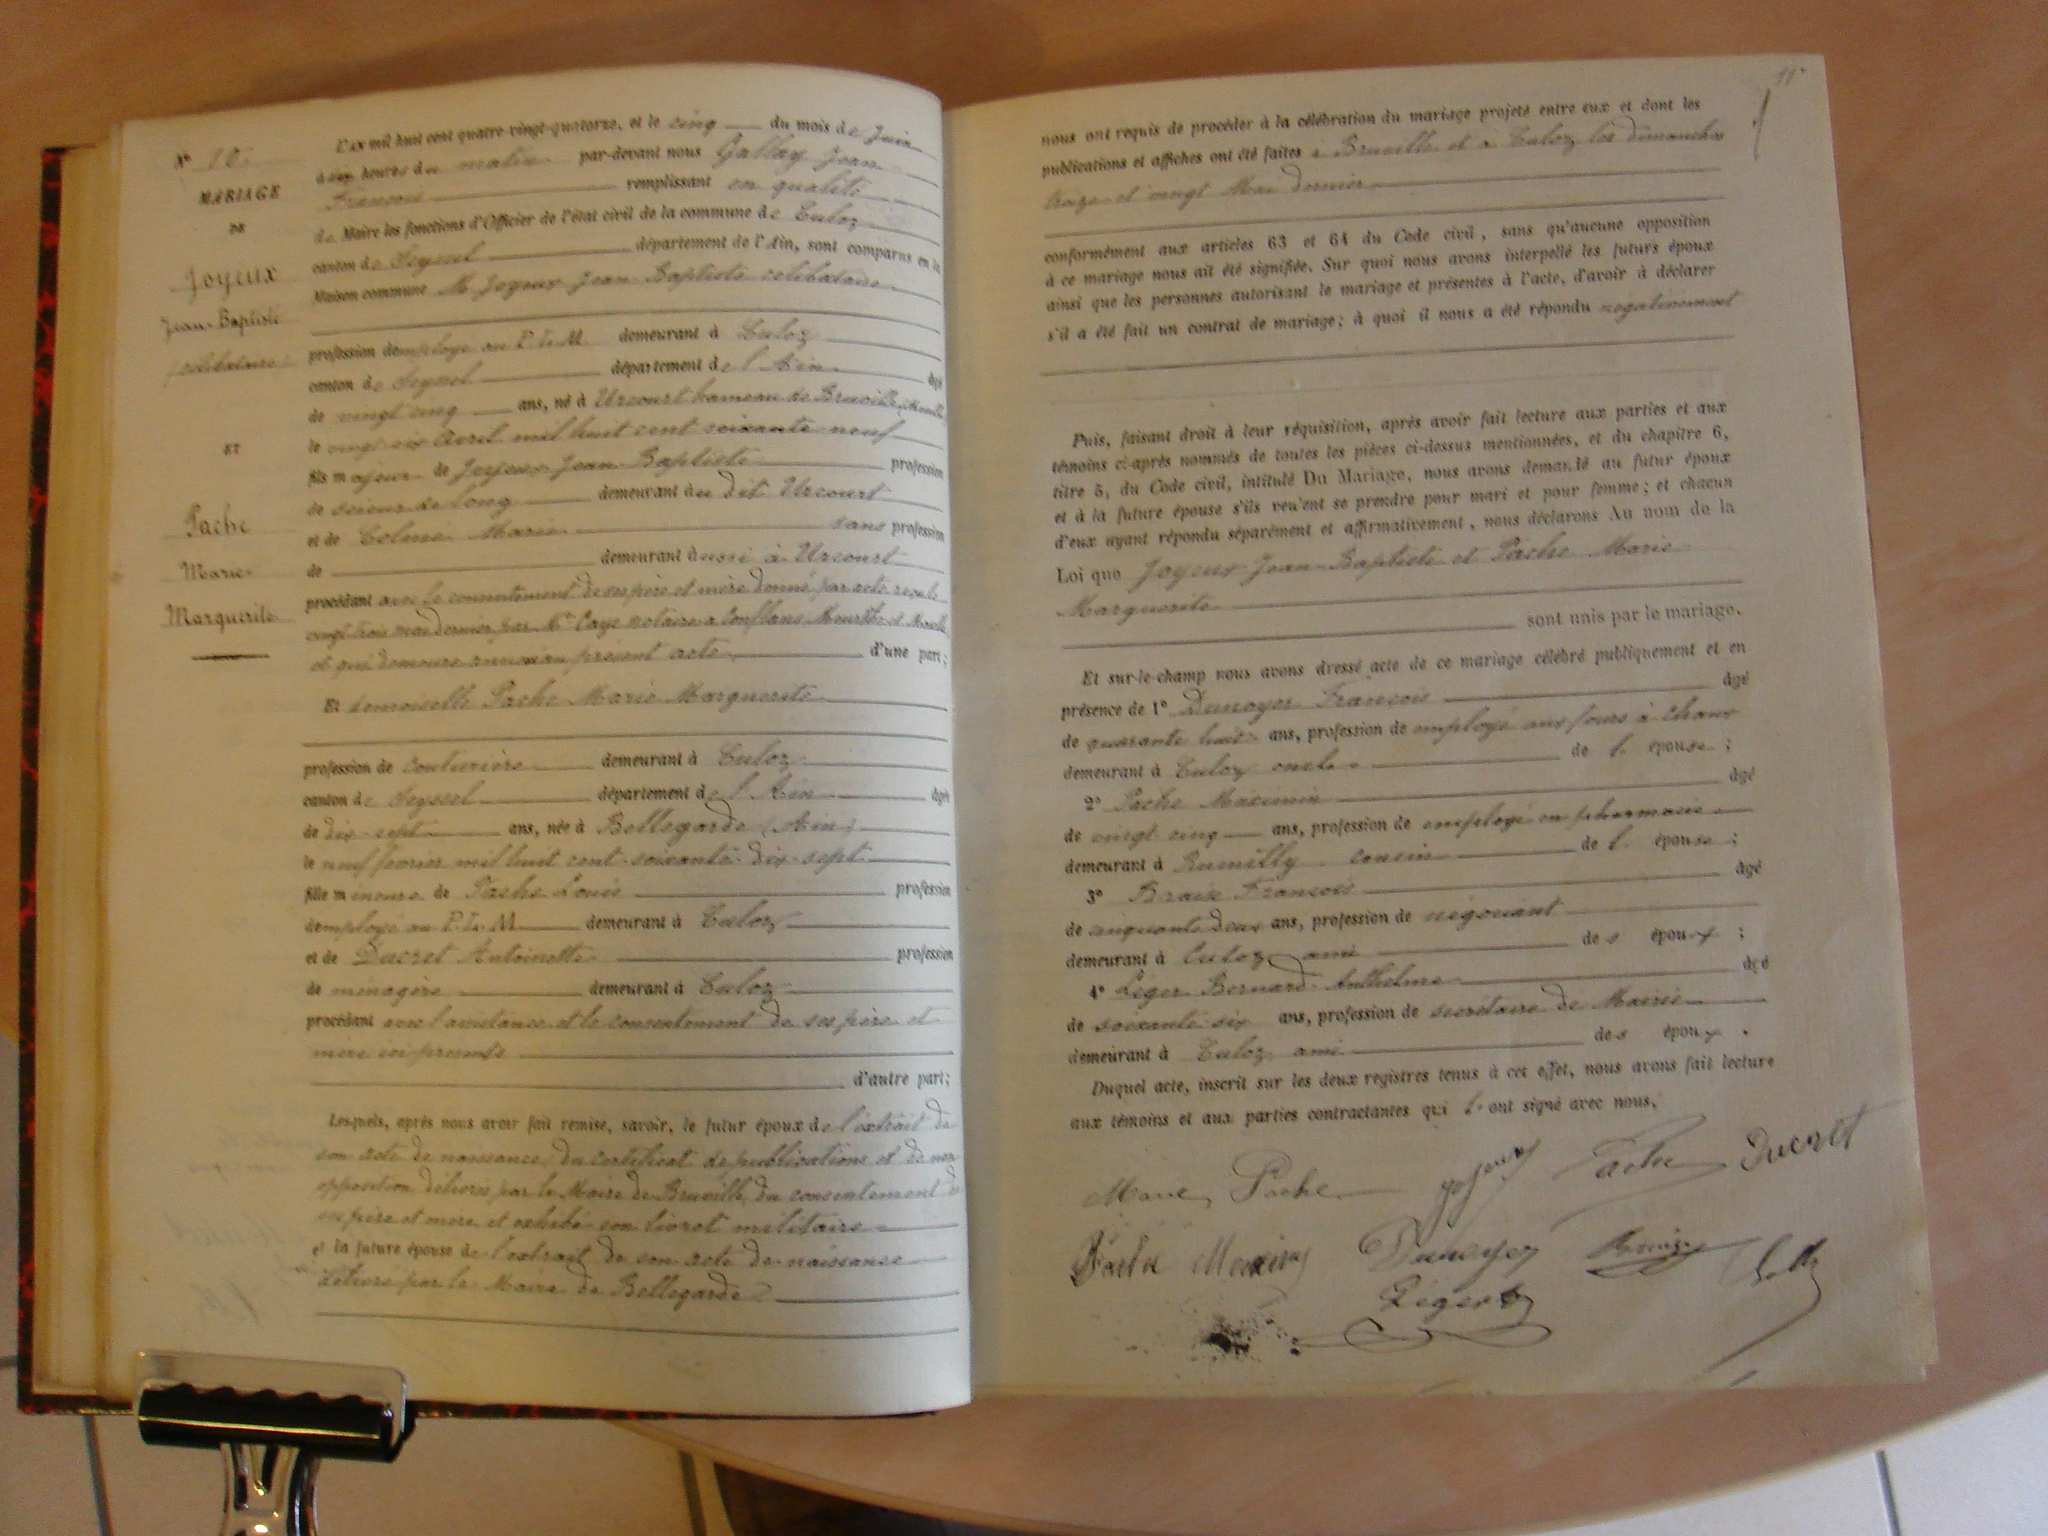 N° 10
MARIAGE
DE
Joyeux
Jean-Baptiste
célibataire
ET
Pache
Marie
Marguerite
L'AN mil huit cent quatre-vingt-quatorze, et le cinq du mois de Juin
à heures du matin par-devant nous Gallay Jean
François remplissant en qualité
de Maire les fonctions d'Officier de l'état civil de la commune de Culoz
canton de Seyssel département de l'Ain, sont comparus en la
Maison commune M. Joyeux Jean-Baptiste célibataire
profession d'employé au P.L.M. demeurant à Culoz
canton de Seyssel département de l'Ain âgé
de vingt cinq ans, né à Urcourt hameau de Bruville
le vingt six Avril mil huit cent soixante neuf
fils majeur de Joyeux Jean-Baptiste profession
de scieur de long demeurant au dit Urcourt
et de Marie sans profession
de demeurant aussi à Urcourt
procédant avec le consentement de ses père et mère donné par acte reçu le
vingt trois mai dernier par Me Caye notaire à Conflans Meurthe et Moselle
et qui demeure annexé au présent acte d'une part;
Et demoiselle Pache Marie Marguerite
profession de couturière demeurant à Culoz
canton de Seyssel département de l'Ain âgée
de dix-sept ans, née à Bellegarde (Ain)
le neuf février mil huit cent soixante-dix-sept
fille mineure de Pache Louis profession
d'employé au P.L.M. demeurant à Culoz
et de Ducret Antoinette profession
de ménagère demeurant à Culoz
procédant avec l'assistance et le consentement de ses père et
mère ici présents
d'autre part;
Lesquels, après nous avoir fait remise, savoir, le futur époux de l'extrait de
son acte de naissance, du certificat de publications et de non
opposition délivrés par le Maire de Bruville, du consentement de
ses père et mère et exhibé son livret militaire
et la future épouse de l'extrait de son acte de naissance
délivré par le Maire de Bellegarde
11
nous ont requis de procéder à la célébration du mariage projeté entre eux et dont les
publications et affiches ont été faites à Bruville et à Culoz les dimanches
treize et vingt Mai dernier
conformément aux articles 63 et 64 du Code civil, sans qu'aucune opposition
à ce mariage nous ait été signifiée. Sur quoi nous avons interpellé les futurs époux
ainsi que les personnes autorisant le mariage et présentes à l'acte, d'avoir à déclarer
s'il a été fait un contrat de mariage; à quoi il nous a été répondu négativement
Puis, faisant droit à leur réquisition, après avoir fait lecture aux parties et aux
témoins ci-après nommés de toutes les pièces ci-dessus mentionnées, et du chapitre 6,
titre 5, du Code civil, intitulé Du Mariage, nous avons demandé au futur époux
et à la future épouse s'ils veulent se prendre pour mari et pour femme; et chacun
d'eux ayant répondu séparément et affirmativement, nous déclarons Au nom de la
Loi que Joyeux Jean-Baptiste et Pache Marie
Marguerite
sont unis par le mariage.
Et sur-le-champ nous avons dressé acte de ce mariage célébré publiquement et en
présence de 1° Dunoyer François âgé
de quarante huit ans, profession de employé aux fours à chaux
demeurant à Culoz oncle de l'épouse;
2° Pache Maximin âgé
de vingt cinq ans, profession de employé en pharmacie
demeurant à Rumilly cousin de l'épouse;
3° François âgé
de cinquante deux ans, profession de négociant
demeurant à Culoz ami des époux;
4° Léger Bernard-Anthelme âgé
de soixante six ans, profession de secrétaire de Mairie
demeurant à Culoz ami des époux.
Duquel acte, inscrit sur les deux registres tenus à cet effet, nous avons fait lecture
aux témoins et aux parties contractantes qui l'ont signé avec nous.
Marie Pache Joyeux Pache Ducret
Pache Maximin Dunoyer
Léger